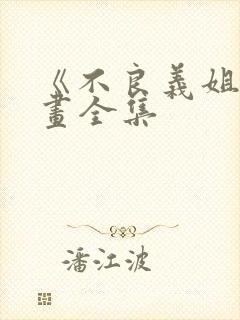 《不良義姐
畫全集
潘江波